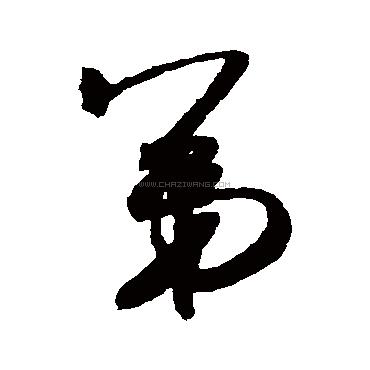 第
WWW.CHAZIWANG.COM